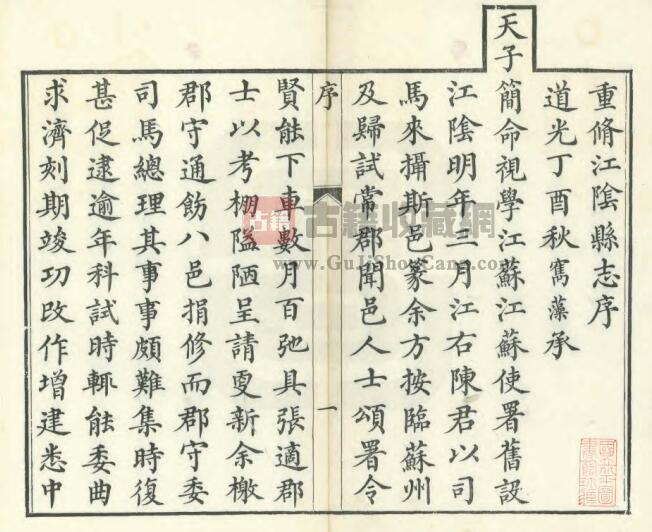 重脩江陰縣志序
道光丁酉秋寯藻承
天子簡命視學江蘇江蘇使署舊設
江陰明年三月江右陳君以司
馬來攝斯邑篆余方按臨蘇州
及歸試常郡聞邑人士頌署令
序
一
賢能下車數月百弛具張適郡
士以考棚隘陋呈請更新余檄
郡守通飭八邑捐修而郡守委
司馬總理其事事頗難集時復
甚促逮逾年科試時輒能委曲
求濟刻期竣功改作增建悉中
古籍
古籍收藏網
www.GuJiShouCang.com